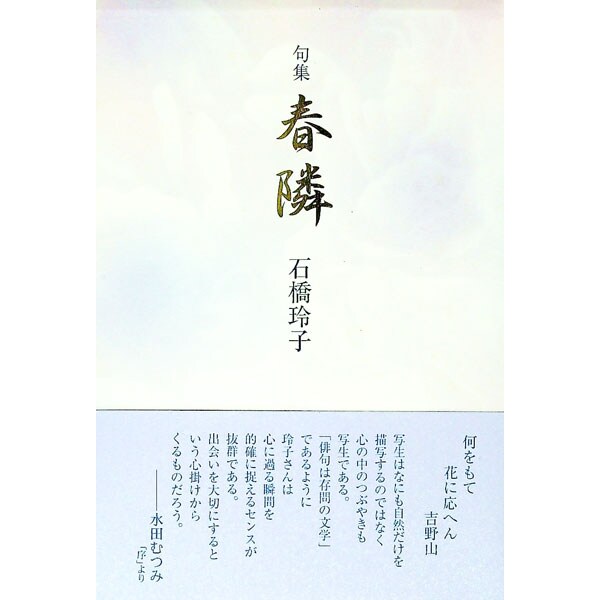 句集
春隣
石橋玲子
何をもて
花に応へん
吉野山
写生はなにも自然だけを
描写するのではなく
心の中のつぶやきも
写生である。
「俳句は存問の文学」
であるように
玲子さんは
心に過る瞬間を
的確に捉えるセンスが
抜群である。
出会いを大切にすると
いう心掛けから
くるものだろう。
――水田むつみ
「序」より